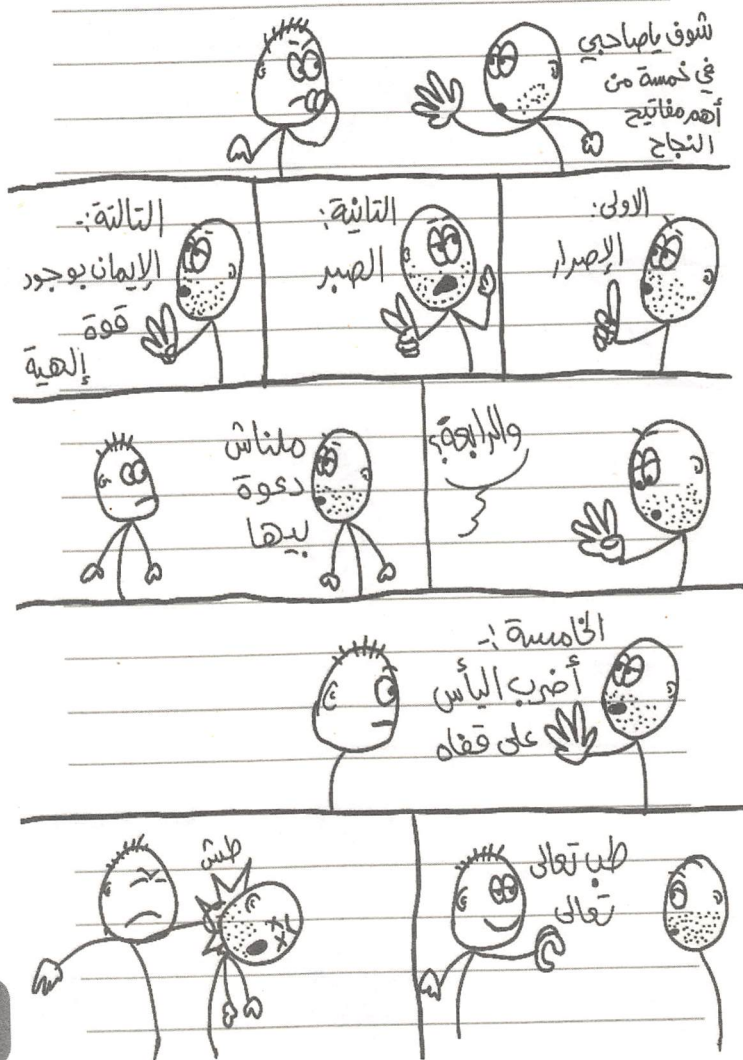 شوف ياصاحبي
في خمسة من
أهم مفاتيح
النجاح
الاولى:
الإصرار
التانية:
الصبر
التالتة:-
الإيمان بوجود
قوة
إلهية
والرابعة؟
ملناش
دعوة
بيها
الخامسة:-
أضرب اليأس
على قفاه
طب تعالى
تعالى
طش